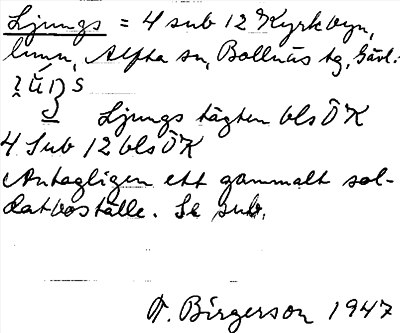 Ljungs = 4 sub 12 Kyrkbyn,
Alfta sn, Bollnäs tg, Gävl.
Ljungs tägten bls ÖK
4 Sub 12 bls ÖK
Antagligen ett gammalt sol-
datboställe. Se sub.
Birgerson 1947